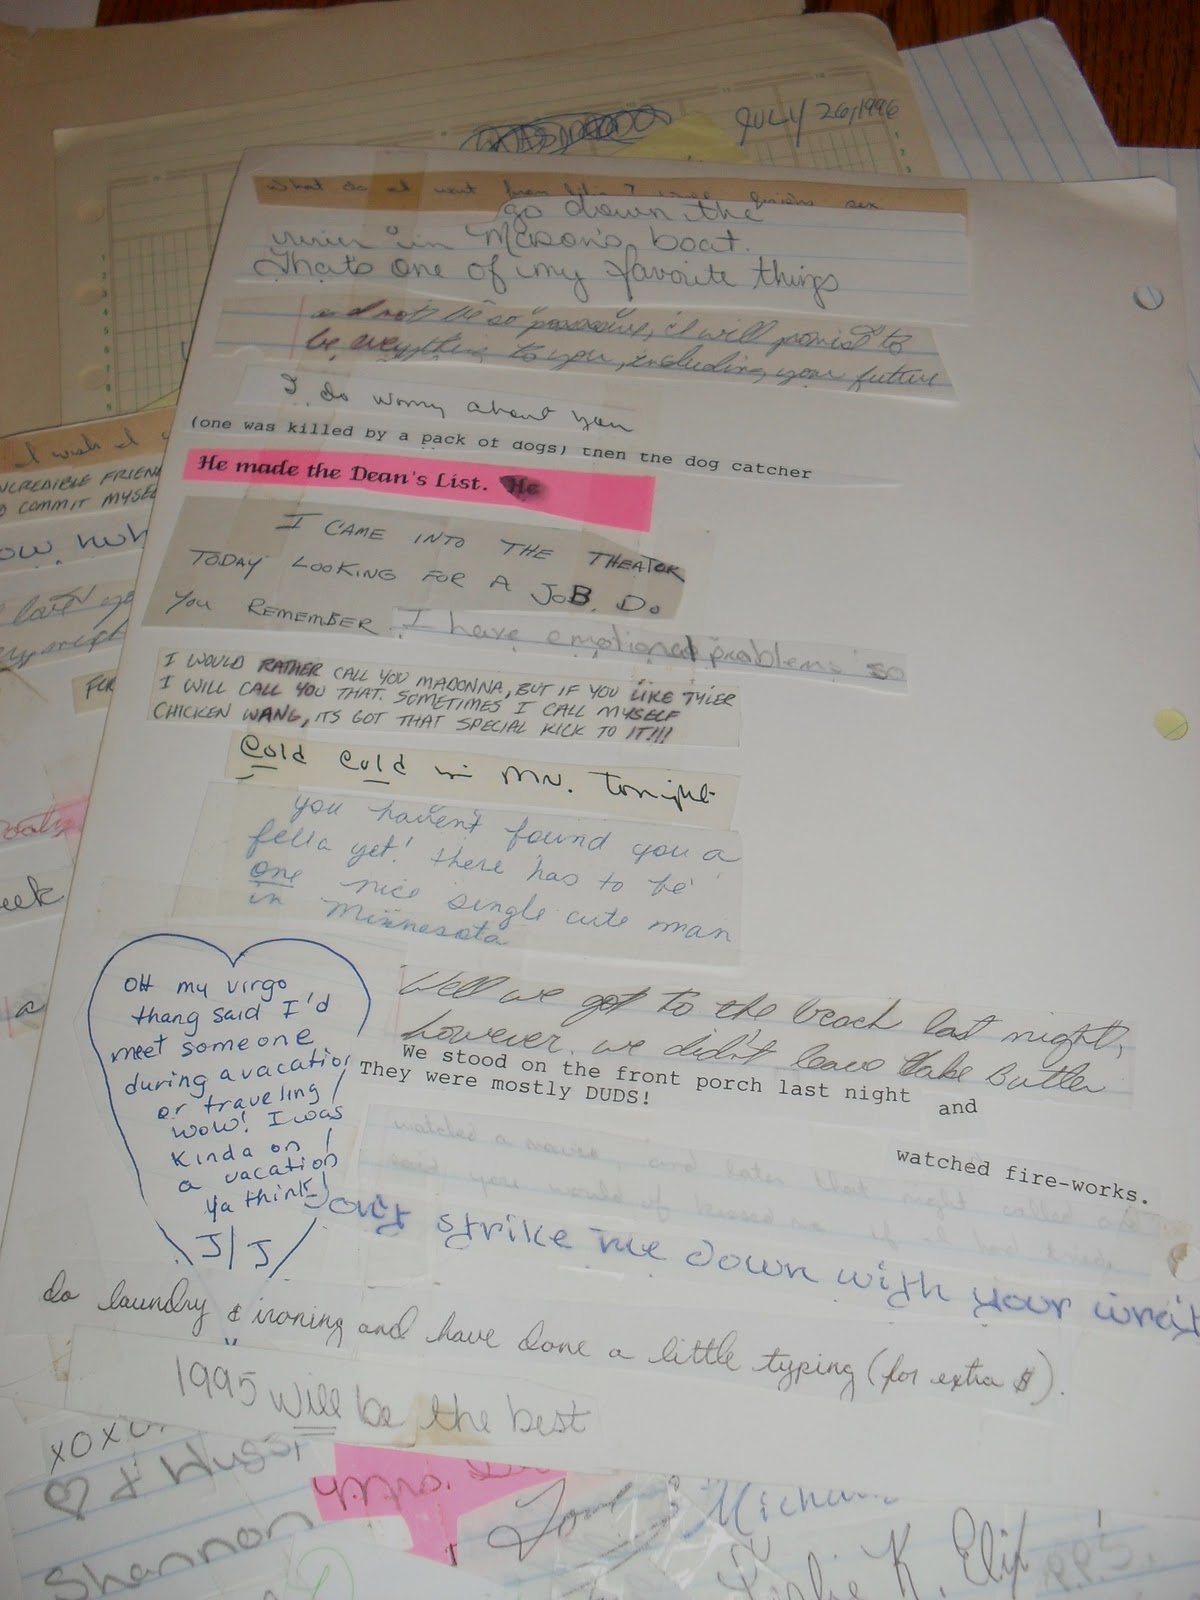 JULY 26, 1996
What do I want from life? I finish sex
go down the
river in Mason's boat.
Thats one of my favorite things
and not be so possesive, I will promise to
be everything to you, including your future
I do worry about you
(one was killed by a pack of dogs) then the dog catcher
He made the Dean's List. He
I CAME INTO THE THEATOR
TODAY LOOKING FOR A JOB. DO
YOU REMEMBER I have emotional problems so
I WOULD RATHER CALL YOU MADONNA, BUT IF YOU LIKE TYLER
I WILL CALL YOU THAT. SOMETIMES I CALL MYSELF
CHICKEN WANG, ITS GOT THAT SPECIAL KICK TO IT!!!
Cold Cold in MN. Tonight
you haven't found you a
fella yet! there has to be
one nice single cute man
in Minnesota
OH my virgo
thang said I'd
meet someone
during a vacation
or traveling
wow! I was
Kinda on
a vacation
Ya think!
J/J
Well we got to the beach last night,
however, we didn't leave Lake Butler
We stood on the front porch last night and
They were mostly DUDS!
watched fire-works.
watched a movie, and later that night called
said you would of kissed me if I had
strike me down with your
do laundry & ironing and have done a little typing (for extra $).
1995 will be the best
I wish I
INCREDIBLE FRIEN
TO COMMIT MYSE
FOR
eek
a
XOXO
Shannon
Mrs.
Love
Leslie K.
P.P.S.